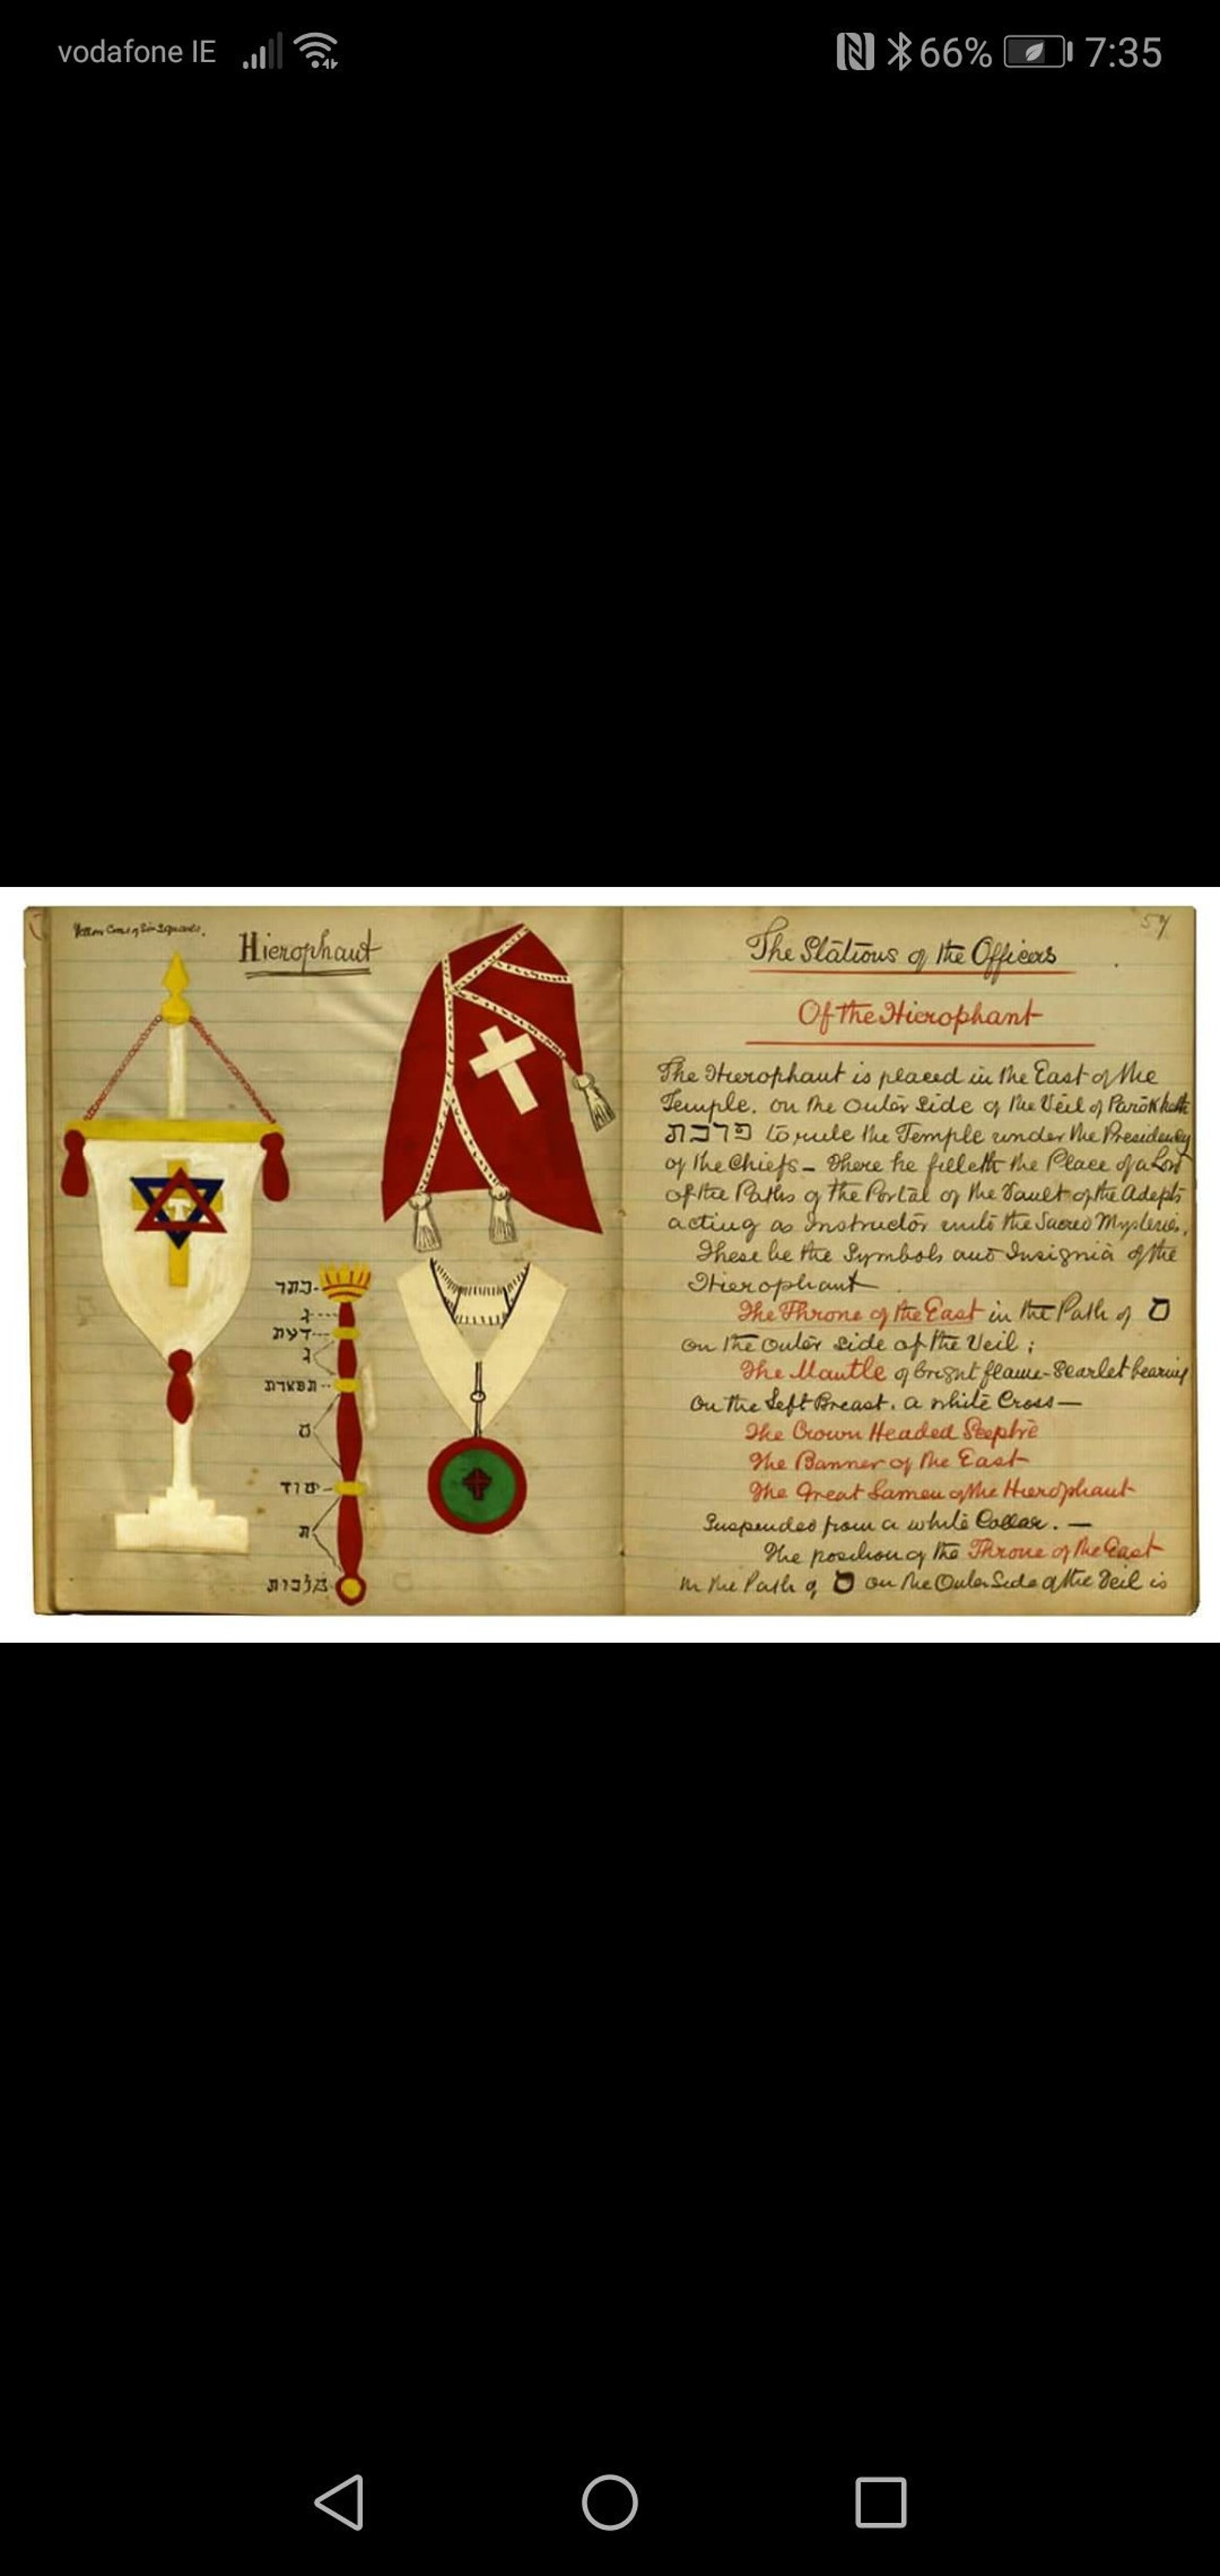 vodafone IE
66% 7:35
Yellow Cross of Six Squares.
Hierophant
כתר
ג
דעת
ג
תפארת
ס
יסוד
ת
מלכות
57
The Stations of the Officers
Of the Hierophant
The Hierophant is placed in the East of the
Temple. on the outer Side of the Veil of Parōkheth
פרכת to rule the Temple under the Presidency
of the Chiefs – There he filleth the Place of a Lord
of the Paths of the Portal of the Vault of the Adepts
acting as Instructor unto the Sacred Mysteries.
These be the Symbols and Insignia of the
Hierophant
The Throne of the East in the Path of ס
on the outer side of the Veil ;
The Mantle of bright flame-Scarlet bearing
on the Left Breast. a white Cross —
The Crown Headed Sceptre
The Banner of the East
The Great Lamen of the Hierophant
Suspended from a white Collar. —
The position of the Throne of the East
in the Path of ס on the Outer Side of the Veil is